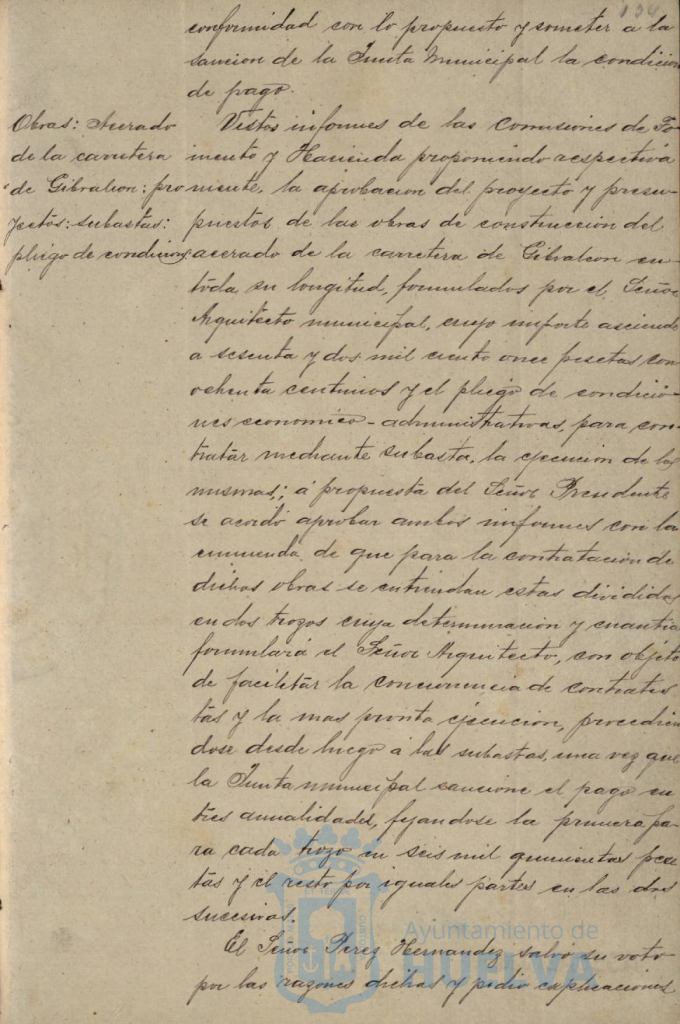 134
conformidad con lo propuesto y someter a la
sancion de la Junta Municipal la condicion
de pago.
Obras: Acerado
de la carretera
de Gibraleon: pro
yectos: subastas:
pliego de condicion.
Vistos informes de las Comisiones de Fo-
mento y Hacienda proponiendo respectiva
mente, la aprobacion del proyecto y presu-
puestos de las obras de construccion del
acerado de la carretera de Gibraleon en
toda su longitud, formulados por el Señor
Arquitecto municipal, cuyo importe asciende
a sesenta y dos mil ciento once pesetas con
ochenta centimos y el pliego de condicio-
nes economico-administrativas, para con-
tratar mediante subasta, la ejecucion de las
mismas; á propuesta del Señor Presidente
se acordó aprobar ambos informes con la
enmienda de que para la contratación de
dichas obras se entiendan estas divididas
en dos trozos cuya determinacion y cuantia
formulará el Señor Arquitecto, con objeto
de facilitar la concurrencia de contratis
tas y la mas pronta ejecucion, procedien
dose desde luego á las subastas, una vez que
la Junta municipal sancione el pago en
tres anualidades, fijandose la primera pa-
ra cada trozo en seis mil quinientas pese
tas y el resto por iguales partes en las dos
sucesivas.
El Señor Perez Hernandez salvó su voto
por las razones dichas y pidio explicaciones
Ayuntamiento de
HUELVA